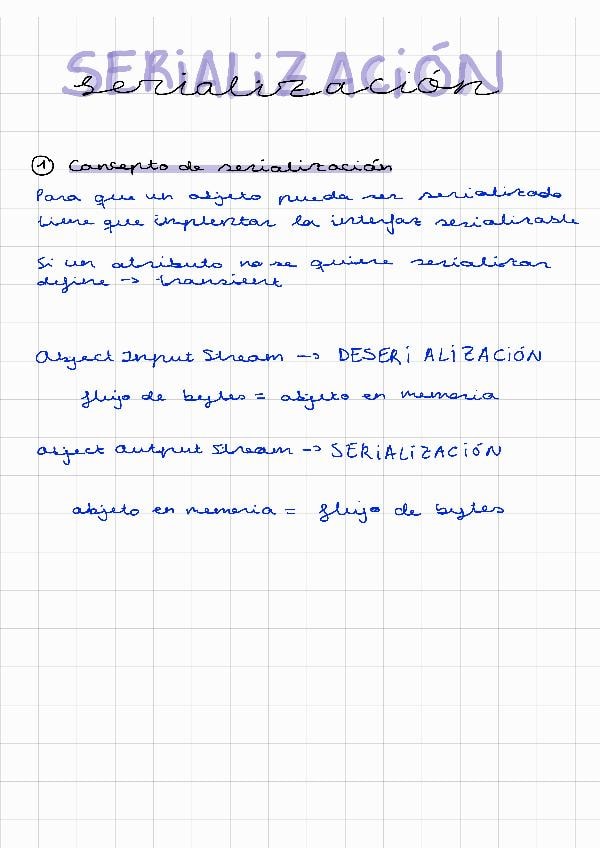 SERiALiZACIÓN
serialización
① Concepto de serialización
Para que un objeto pueda ser serializado
tiene que implentar la interfaz serializable
Si un atributo no se quiere serializar
define -> transient
Object Input Stream -> DESERi ALIZACIÓN
flujo de bytes = objeto en memoria
Object Output Stream -> SERiALIZACIÓN
objeto en memoria = flujo de bytes